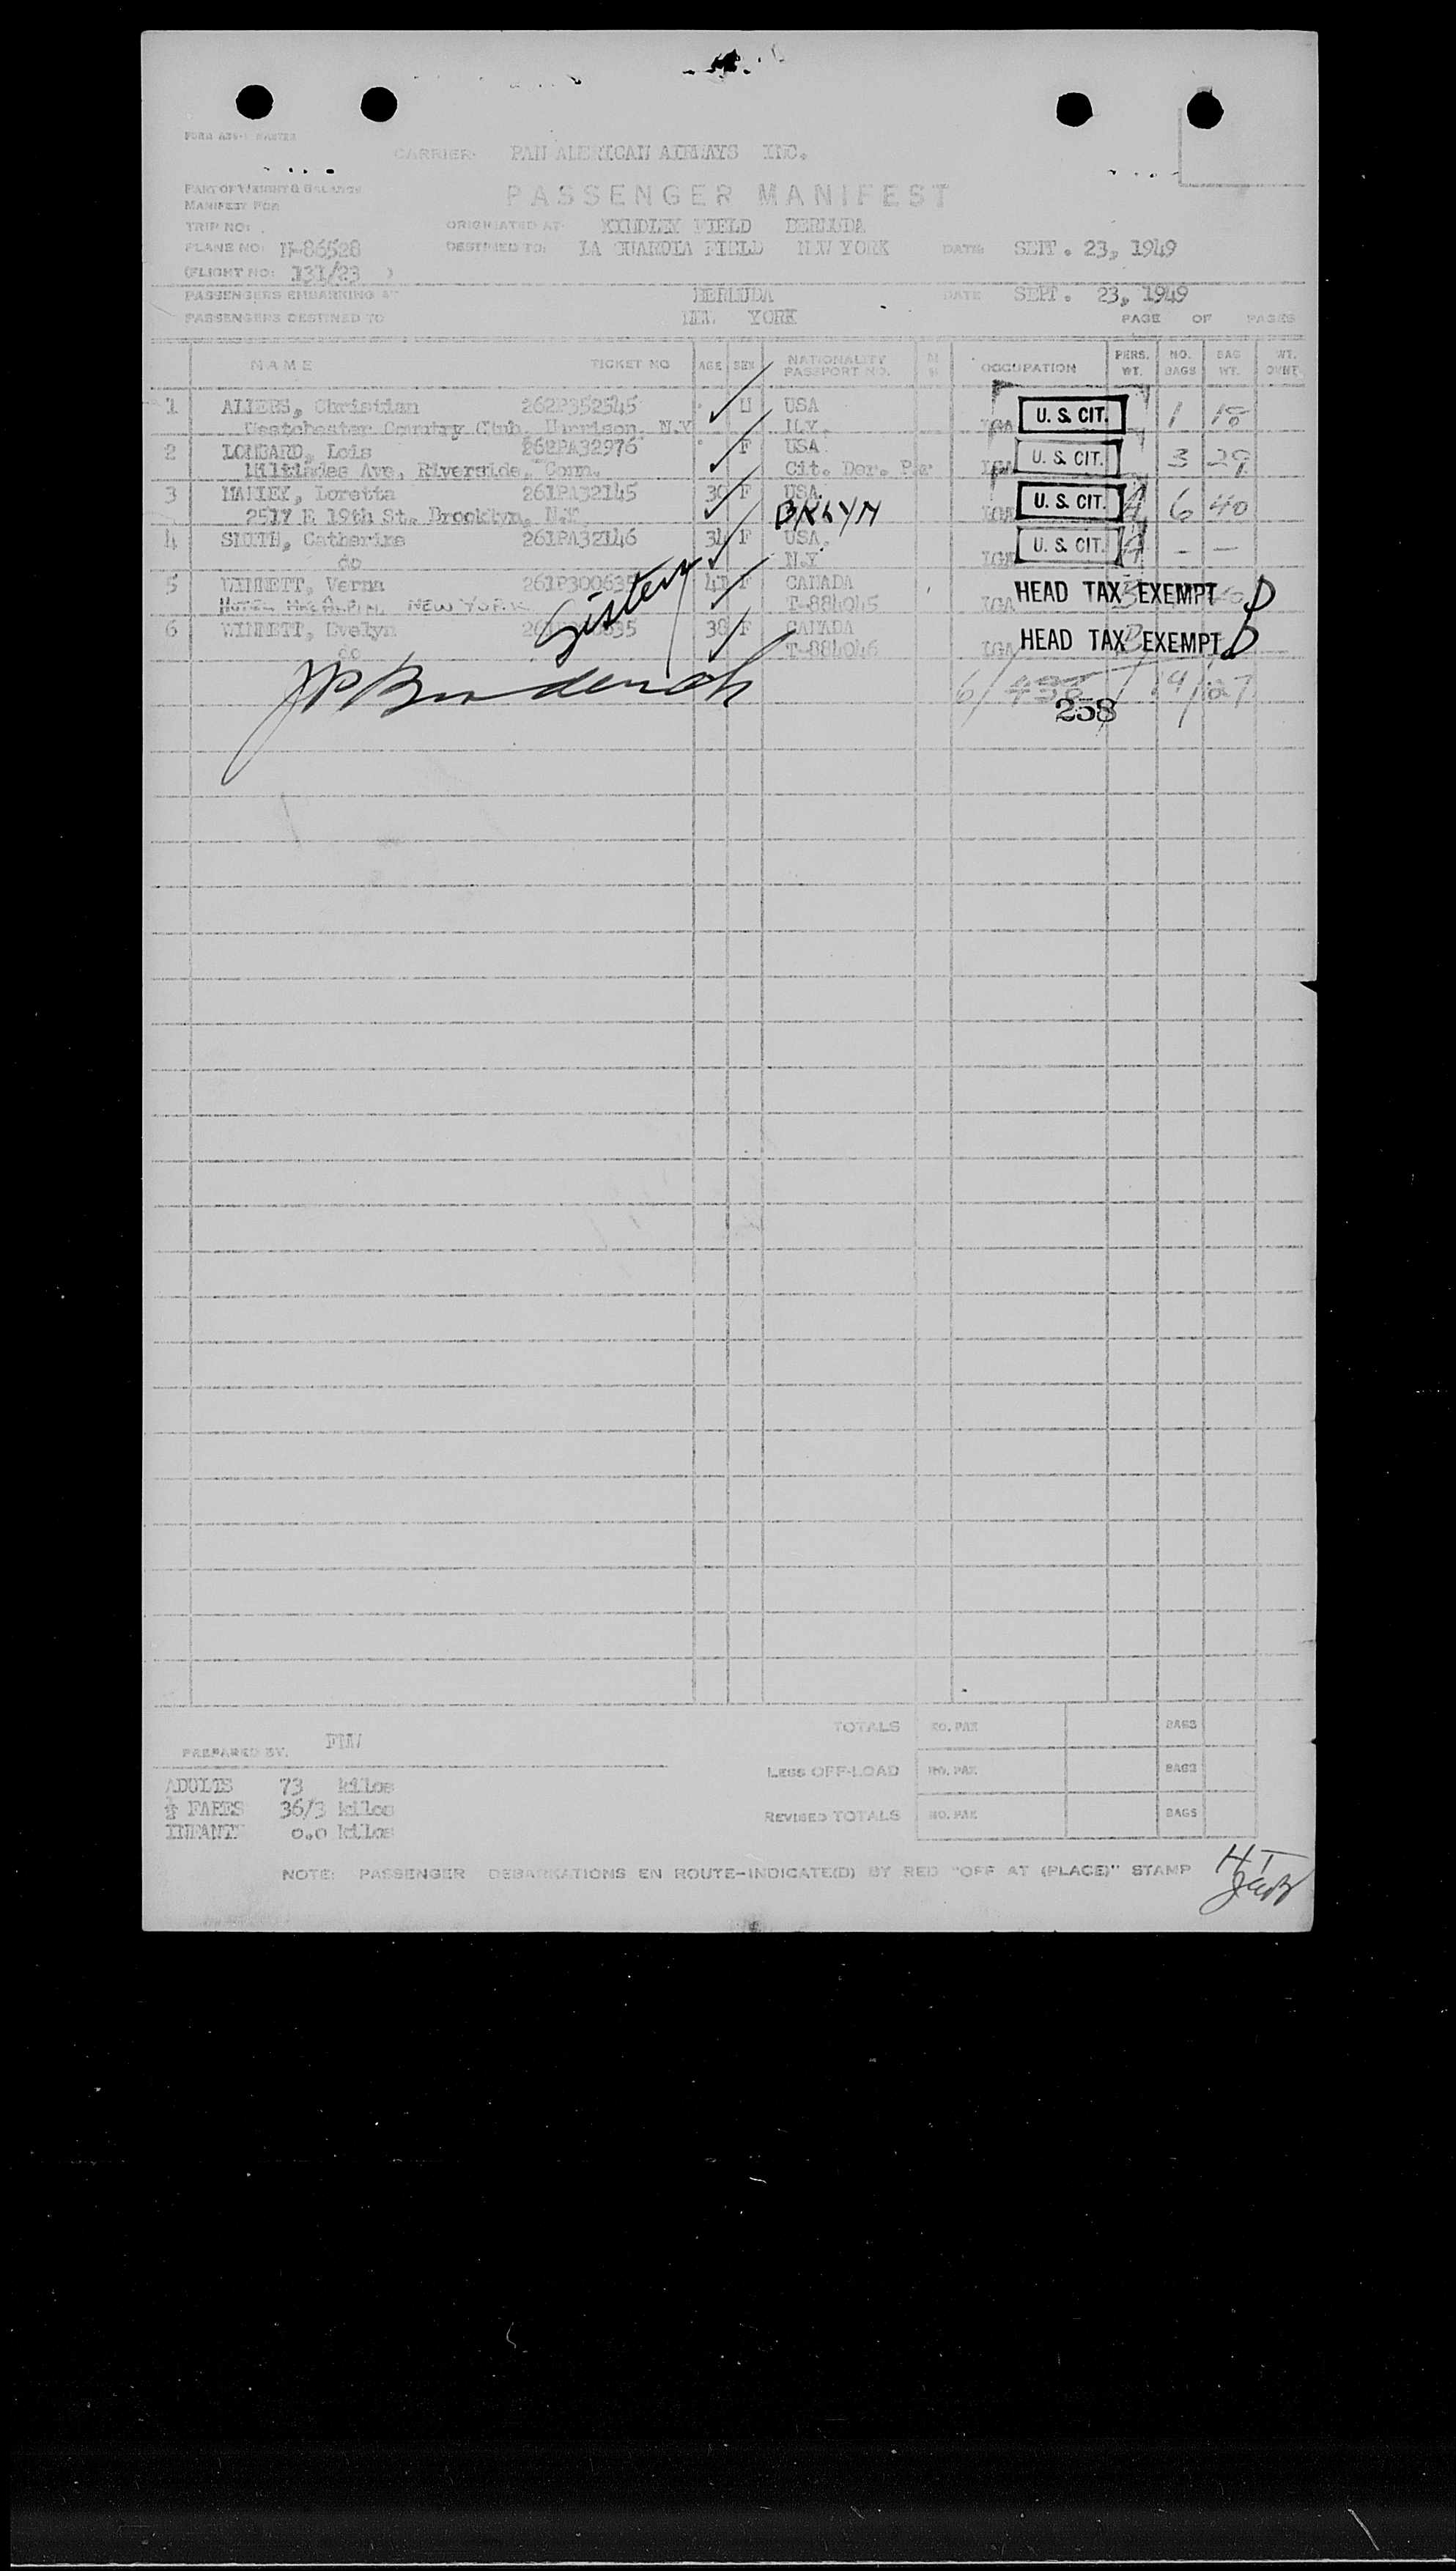 CARRIER: PAN AMERICAN AIRWAYS INC.
PART OF WEIGHT & BALANCE
MANIFEST FOR
PASSENGER MANIFEST
TRIP NO:
ORIGINATED AT: KINDLEY FIELD BERMUDA
PLANE NO: N-86528
DESTINED TO: LA GUARDIA FIELD NEW YORK DATE: SEPT. 23, 1949
(FLIGHT NO: 131/23 )
PASSENGERS EMBARKING AT BERMUDA DATE SEPT. 23, 1949
PASSENGERS DESTINED TO NEW YORK PAGE OF PAGES
NAME TICKET NO AGE SEX NATIONALITY PASSPORT NO. OCCUPATION PERS. WT. NO. BAGS BAG WT. WT. OVHT.
1 Christian 262P352545 M USA U. S. CIT. 1 18
Westchester Country Club, Harrison, N.Y. N.Y. LGA
2 LOMBARD, Lois 262PA32976 F USA U. S. CIT. 3 29
Miltiades Ave, Riverside, Conn. Cit. Der. Par LGA
3 Loretta 261PA32145 30 F USA. U. S. CIT. A 6 40
2517 E 19th St. Brooklyn, N.Y. BKLYN LGA
4 SMITH, Catherine 261PA32146 34 F USA. U. S. CIT. A - -
do N.Y. LGA
5 WINNETT, Verna 261P300635 F CANADA HEAD TAX EXEMPT D
HOTEL McALPIN NEW YORK T-884045 LGA
Sisters
6 WINNETT, Evelyn 38 F CANADA HEAD TAX EXEMPT D
do T-884046 LGA
6/ 438 / 14/127
258
PREPARED BY.
TOTALS NO. PAX BAGS
LESS OFF-LOAD NO. PAX BAGS
REVISED TOTALS NO. PAX BAGS
ADULTS 73 kilos
½ FARES 36/3 kilos
INFANT 0.0 kilos
NOTE: PASSENGER DEBARKATIONS EN ROUTE-INDICATE(D) BY RED "OFF AT (PLACE)" STAMP
HT